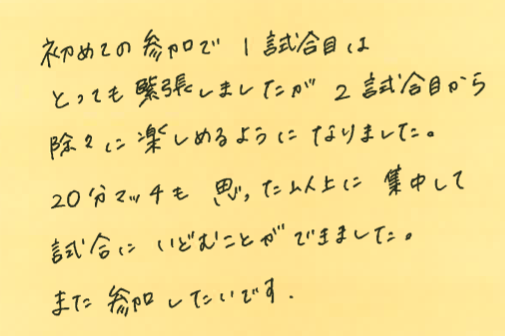 初めての参加で1試合目は
とっても緊張しましたが2試合目から
除々に楽しめるようになりました。
20分マッチも思った以上に集中して
試合にいどむことができました。
また参加したいです.